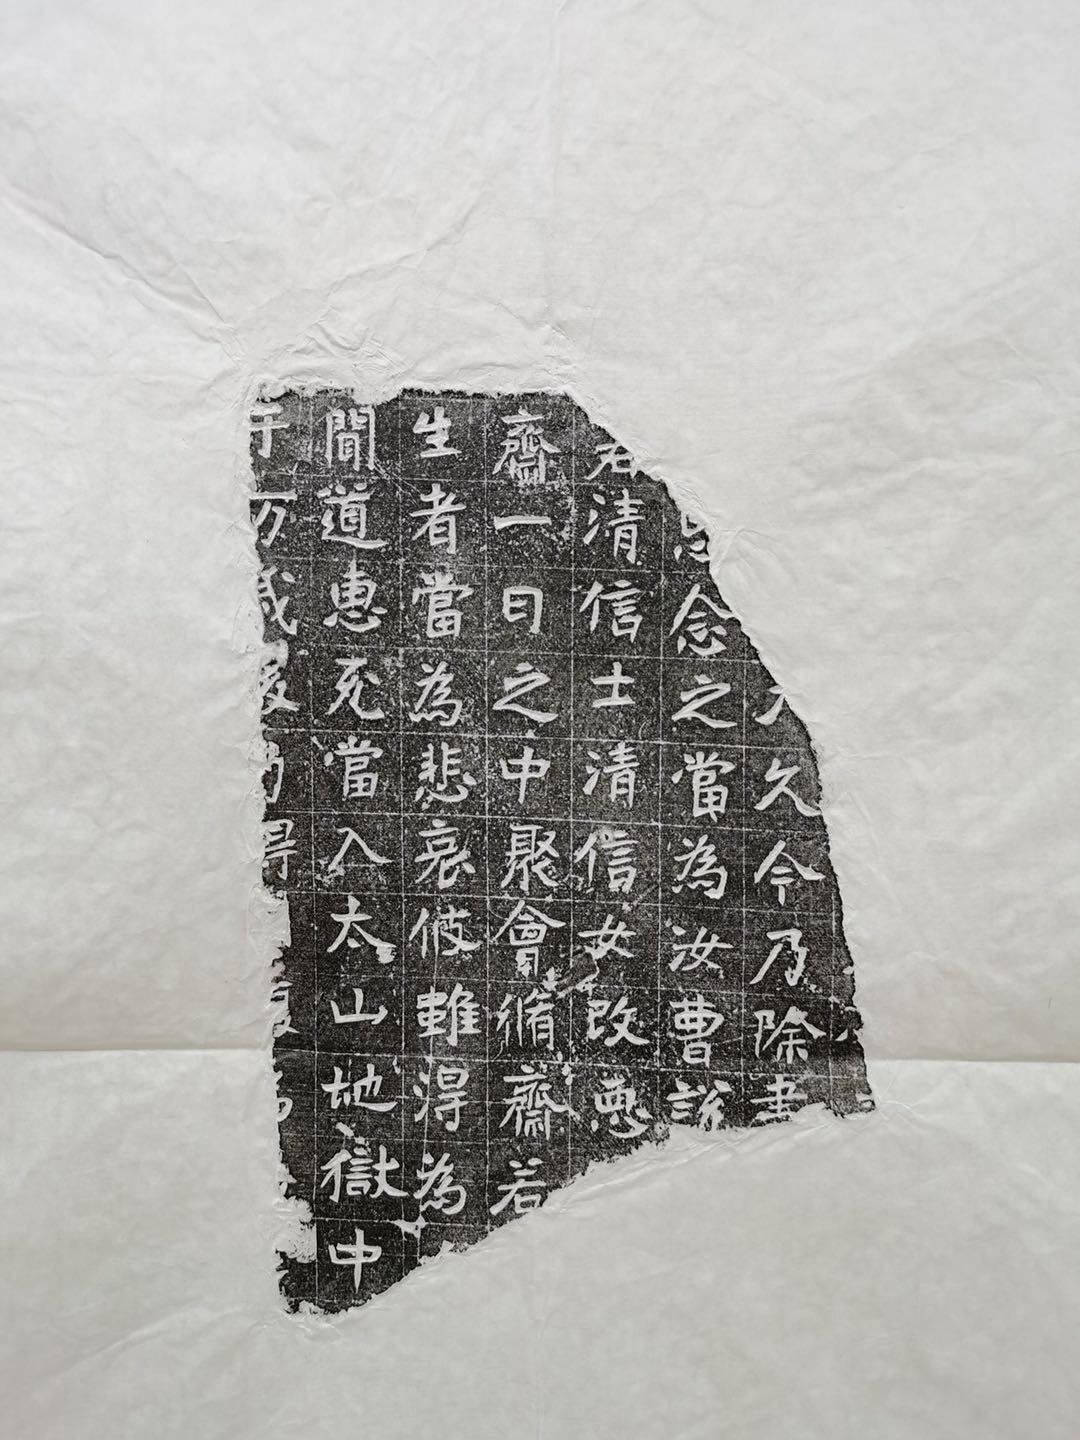 久今乃除
念之當為汝曹説
若清信士清信女改惡
齋一日之中聚會脩齋若
生者當為悲哀彼雖得為
間道惠死當入太山地獄中
千万歲